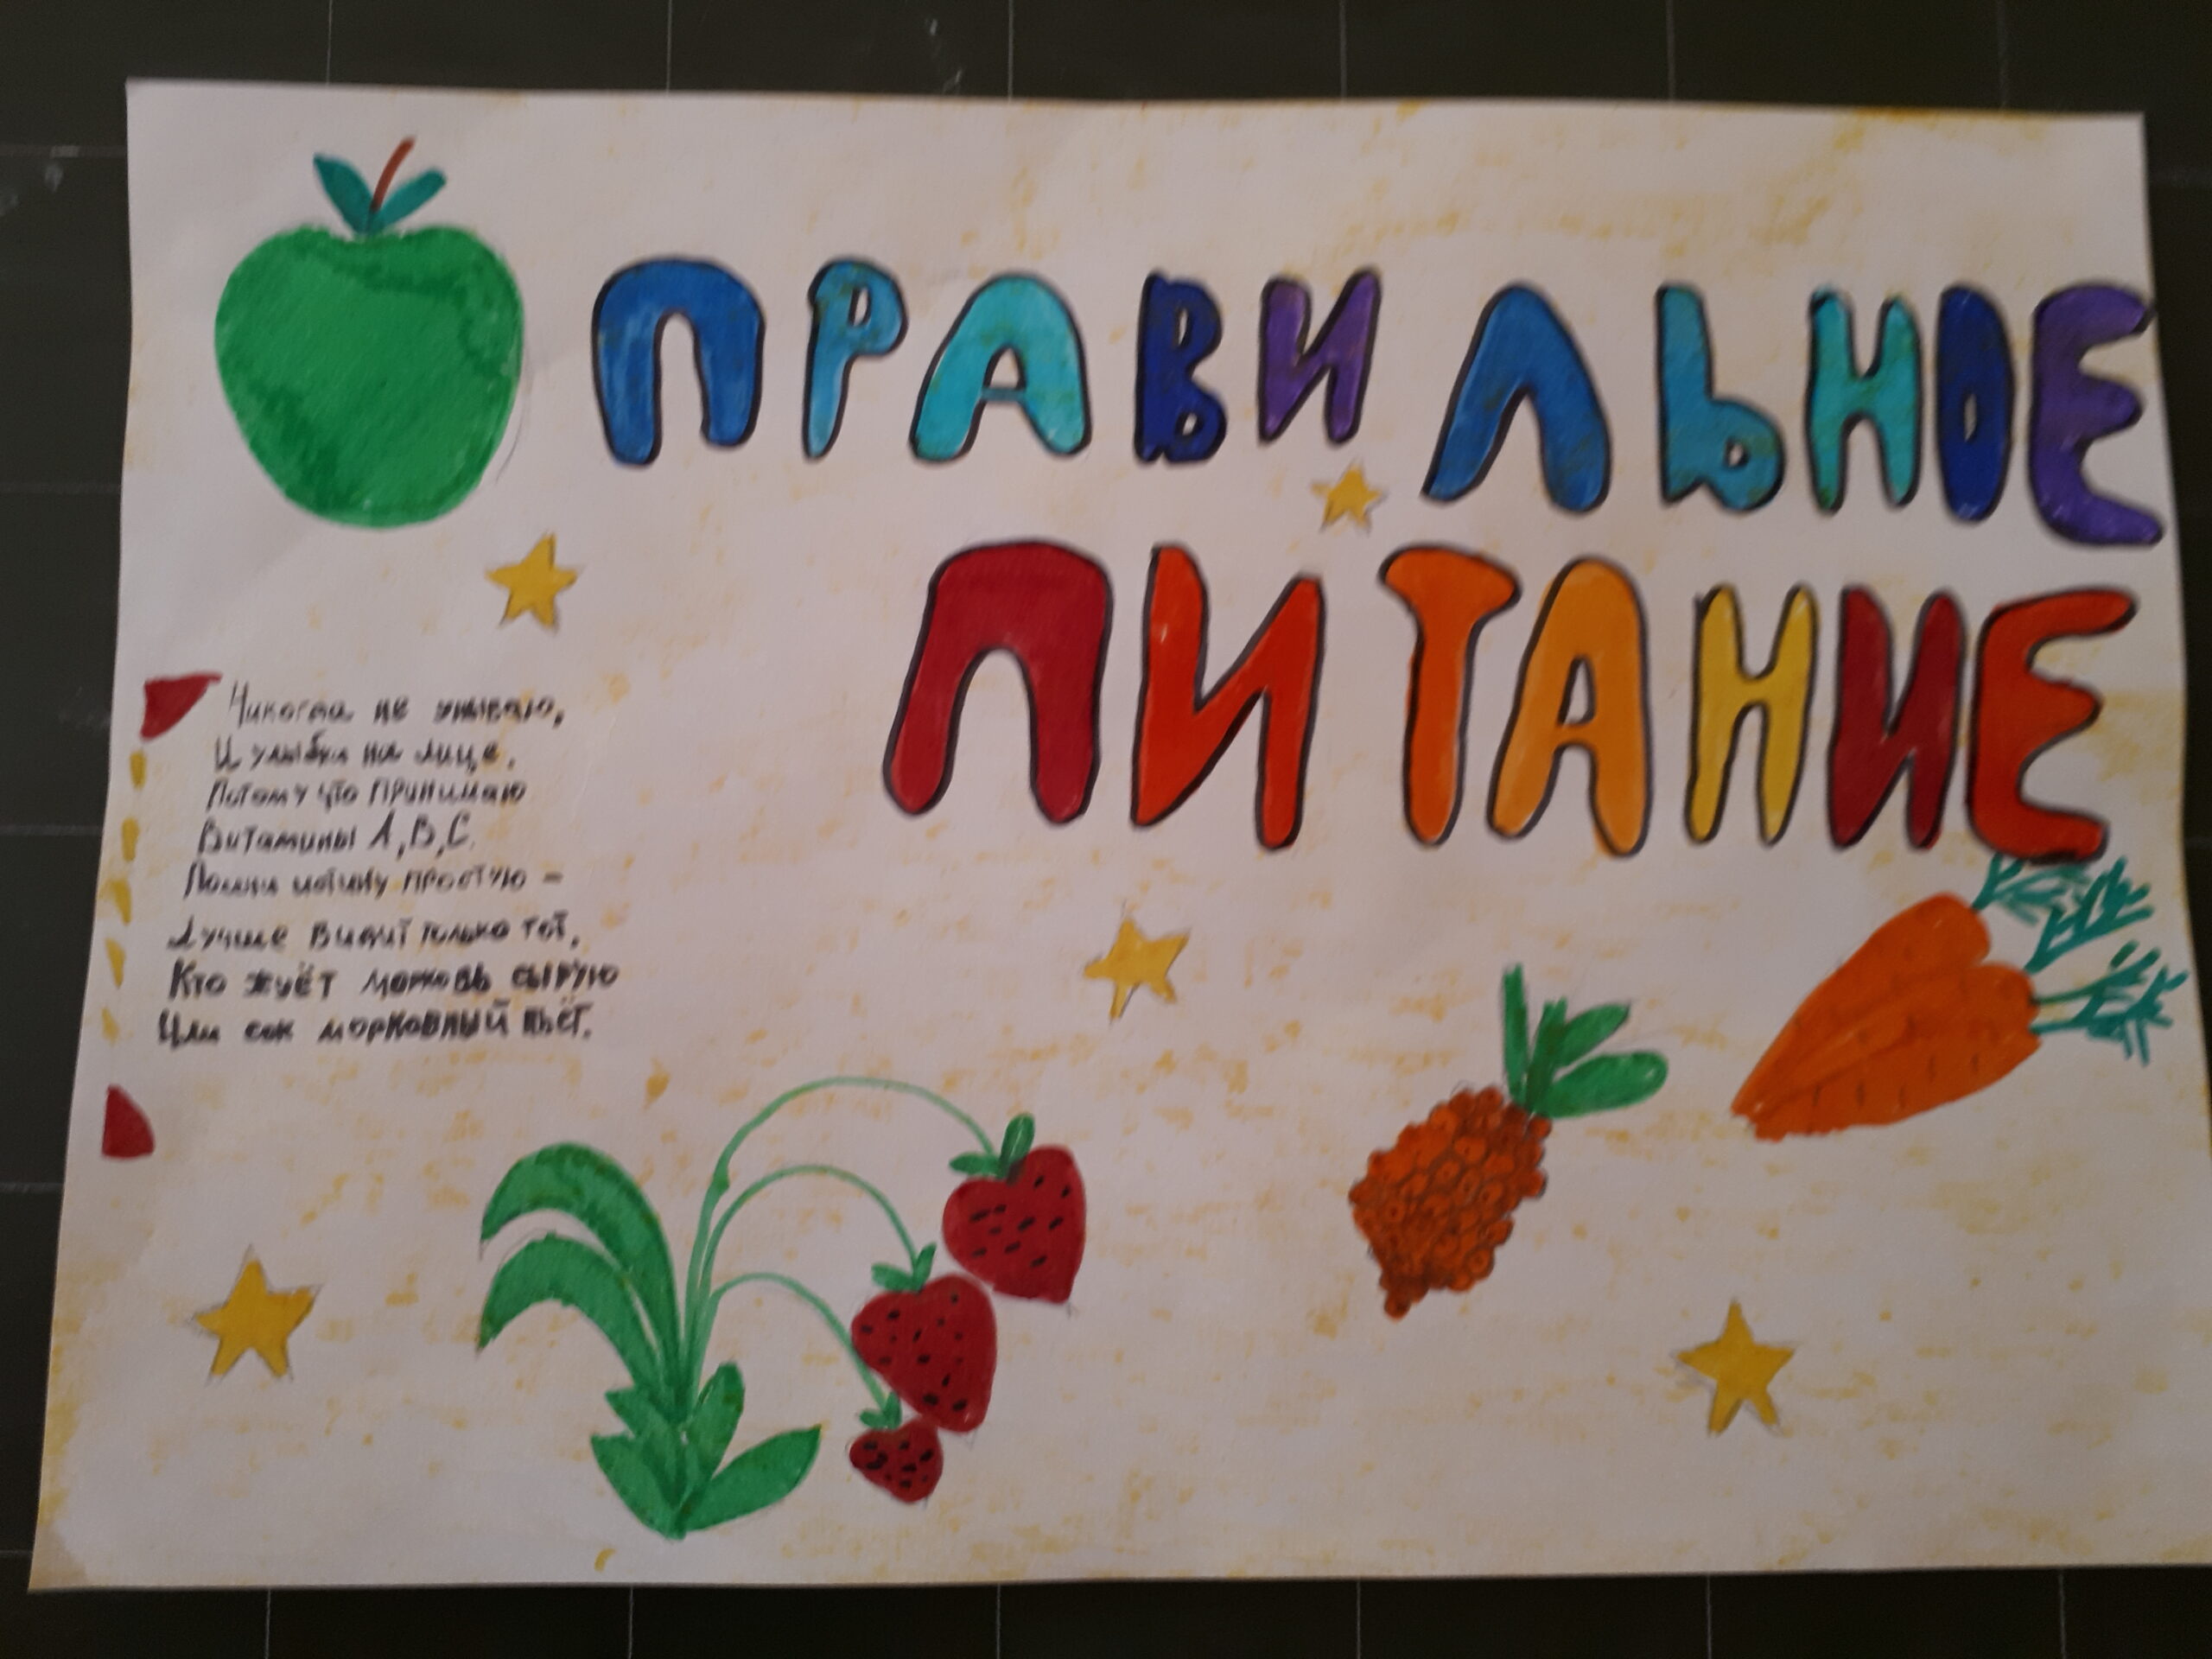 ПРАВИЛЬНОЕ
ПИТАНИЕ
Никогда не унываю,
И улыбка на лице.
Потому что принимаю
Витамины А, В, С.
Помни истину простую –
Лучше видит только тот,
Кто жуёт морковь сырую
Или сок морковный пьёт.